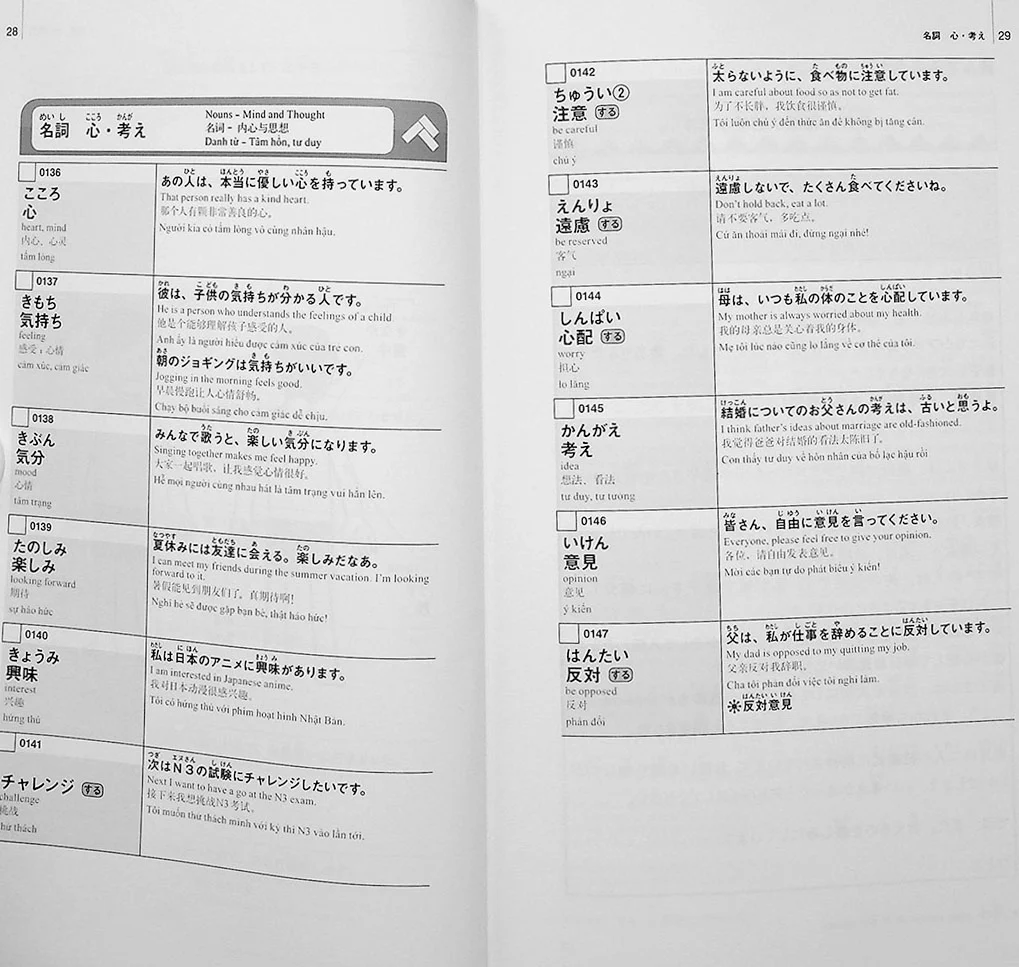 28
めいし こころ かんが
名詞 心・考え
Nouns – Mind and Thought
名词 – 内心与思想
Danh từ – Tâm hồn, tư duy
0136
こころ
心
heart, mind
内心、心灵
tấm lòng
ひと ほんとう やさ こころ も
あの人は、本当に優しい心を持っています。
That person really has a kind heart.
那个人有颗非常善良的心。
Người kia có tấm lòng vô cùng nhân hậu.
0137
きもち
気持ち
feeling
感受；心情
cảm xúc, cảm giác
かれ こども きも わ ひと
彼は、子供の気持ちが分かる人です。
He is a person who understands the feelings of a child.
他是个能够理解孩子感受的人。
Anh ấy là người hiểu được cảm xúc của trẻ con.
あさ きも
朝のジョギングは気持ちがいいです。
Jogging in the morning feels good.
早晨慢跑让人心情舒畅。
Chạy bộ buổi sáng cho cảm giác dễ chịu.
0138
きぶん
気分
mood
心情
tâm trạng
うた たの きぶん
みんなで歌うと、楽しい気分になります。
Singing together makes me feel happy.
大家一起唱歌，让我感觉心情很好。
Hễ mọi người cùng nhau hát là tâm trạng vui hẳn lên.
0139
たのしみ
楽しみ
looking forward
期待
sự háo hức
なつやす ともだち あ たの
夏休みには友達に会える。楽しみだなあ。
I can meet my friends during the summer vacation. I'm looking
forward to it.
暑假能见到朋友们了。真期待啊！
Nghỉ hè sẽ được gặp bạn bè, thật háo hức!
0140
きょうみ
興味
interest
兴趣
hứng thú
わたし にほん きょうみ
私は日本のアニメに興味があります。
I am interested in Japanese anime.
我对日本动漫很感兴趣。
Tôi có hứng thú với phim hoạt hình Nhật Bản.
0141
チャレンジ する
challenge
挑战
thử thách
つぎ エヌさん しけん
次はN3の試験にチャレンジしたいです。
Next I want to have a go at the N3 exam.
接下来我想挑战N3考试。
Tôi muốn thử thách mình với kỳ thi N3 vào lần tới.
名詞 心・考え 29
0142
ちゅうい②
注意 する
be careful
谨慎
chú ý
ふと た もの ちゅうい
太らないように、食べ物に注意しています。
I am careful about food so as not to get fat.
为了不长胖，我饮食很谨慎。
Tôi luôn chú ý đến thức ăn để không bị tăng cân.
0143
えんりょ
遠慮 する
be reserved
客气
ngại
えんりょ た
遠慮しないで、たくさん食べてくださいね。
Don't hold back, eat a lot.
请不要客气，多吃点。
Cứ ăn thoải mái đi, đừng ngại nhé!
0144
しんぱい
心配 する
worry
担心
lo lắng
はは わたし からだ しんぱい
母は、いつも私の体のことを心配しています。
My mother is always worried about my health.
我的母亲总是关心着我的身体。
Mẹ tôi lúc nào cũng lo lắng về cơ thể của tôi.
0145
かんがえ
考え
idea
想法、看法
tư duy, tư tưởng
けっこん とう かんが ふる おも
結婚についてのお父さんの考えは、古いと思うよ。
I think father's ideas about marriage are old-fashioned.
我觉得爸爸对结婚的看法太陈旧了。
Con thấy tư duy về hôn nhân của bố lạc hậu rồi
0146
いけん
意見
opinion
意见
ý kiến
みな じゆう いけん い
皆さん、自由に意見を言ってください。
Everyone, please feel free to give your opinion.
各位，请自由发表意见。
Mời các bạn tự do phát biểu ý kiến!
0147
はんたい
反対 する
be opposed
反对
phản đối
ちち わたし しごと や はんたい
父は、私が仕事を辞めることに反対しています。
My dad is opposed to my quitting my job.
父亲反对我辞职。
Cha tôi phản đối việc tôi nghỉ làm.
はんたいいけん
※反対意見